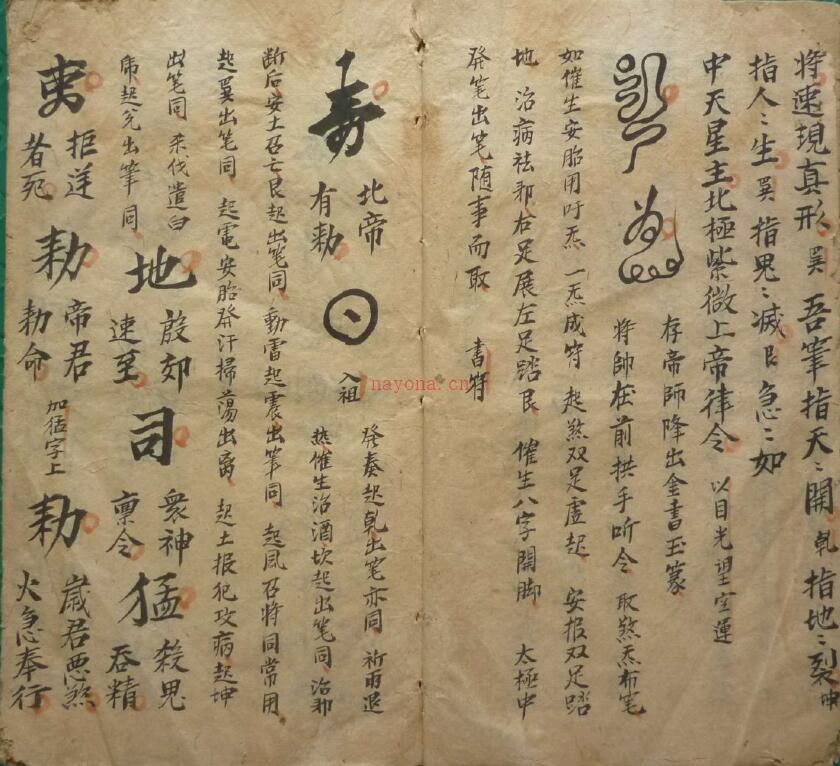 将速現真形 巽 吾筆指天〻開 乾 指地〻裂 坤
指人〻生 巽 指鬼〻滅 艮 急〻如
中天星主北極紫微上帝律令 以目光望空運
存帝師降出金書玉篆
将帥在前拱手听令 取煞炁布笔
如催生安胎用吁炁 一炁成符 起煞双足虚起 安报双足踏
地 治病祛邪右足展左足踏艮 催生八字開脚 太極中
發笔出笔随事而取 書符
壽
北帝
有勅
入祖
發奏起乾出笔亦同 祈雨退
热催生治酒坎起出笔同 治邪
断后安土召亡艮起出笔同 動雷起震出筆同 起風召将同常用
起巽出笔同 起電安胎發汗掃蕩出离 起土报犯攻病起坤
出笔同 来伐遣白
虎起兑出筆同
地
殷郊
速至
司
衆神
稟令
猛
殺鬼
吞精
拒逆
者死
勅
帝君
勅命
加猛字上
勅
歲君悪煞
火急奉行
nayona.cn